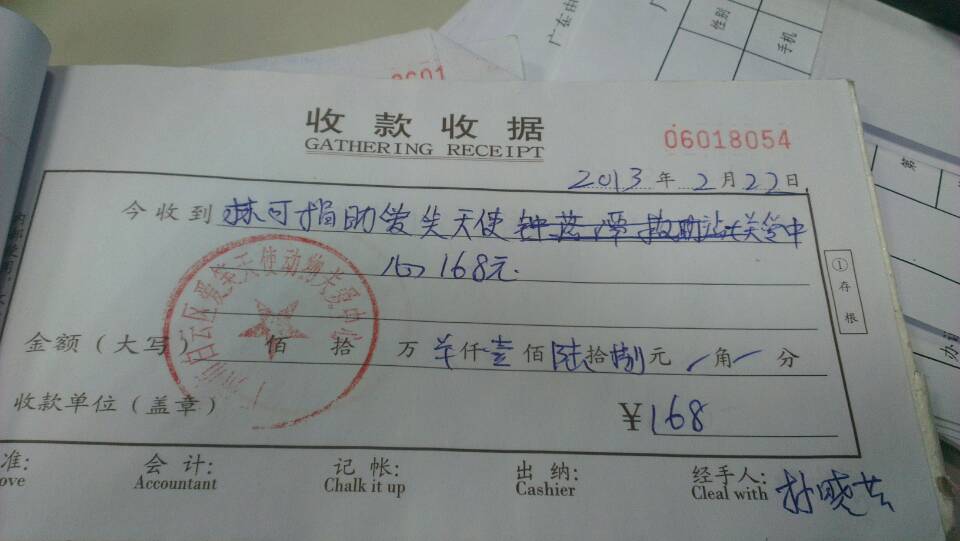 广东由
性别
手机
第
0601
收款收据
GATHERING RECEIPT
06018054
2013年2月22日
今收到 林可捐助爱笑天使钟落潭救助站关爱中
心 168元.
①存根
金额(大写) 佰 拾 万 羊仟壹佰陆拾捌元 / 角 / 分
收款单位(盖章)
¥168
准: 会计: 记帐: 出纳: 经手人:
ove Accountant Chalk it up Cashier Cleal with